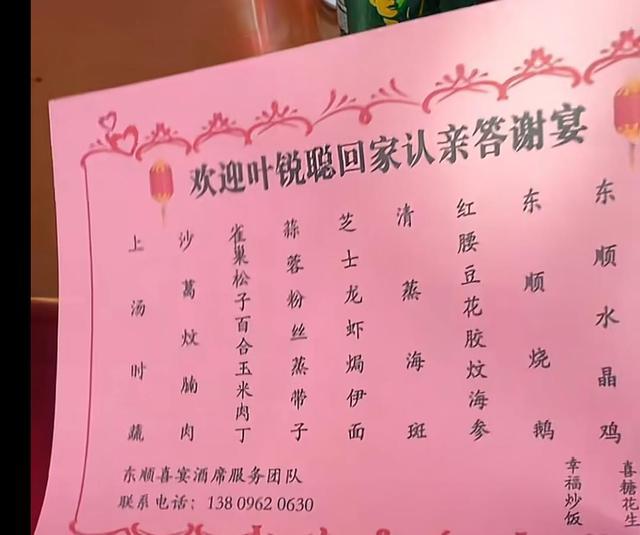 欢迎叶锐聪回家认亲答谢宴
东顺水晶鸡
东顺烧鹅
红腰豆花胶炆海参
清蒸海斑
芝士龙虾焗伊面
蒜蓉粉丝蒸带子
雀巢松子百合玉米肉丁
沙葛炆腩肉
上汤时蔬
喜糖花生
幸福炒饭
东顺喜宴酒席服务团队
联系电话：138 0962 0630